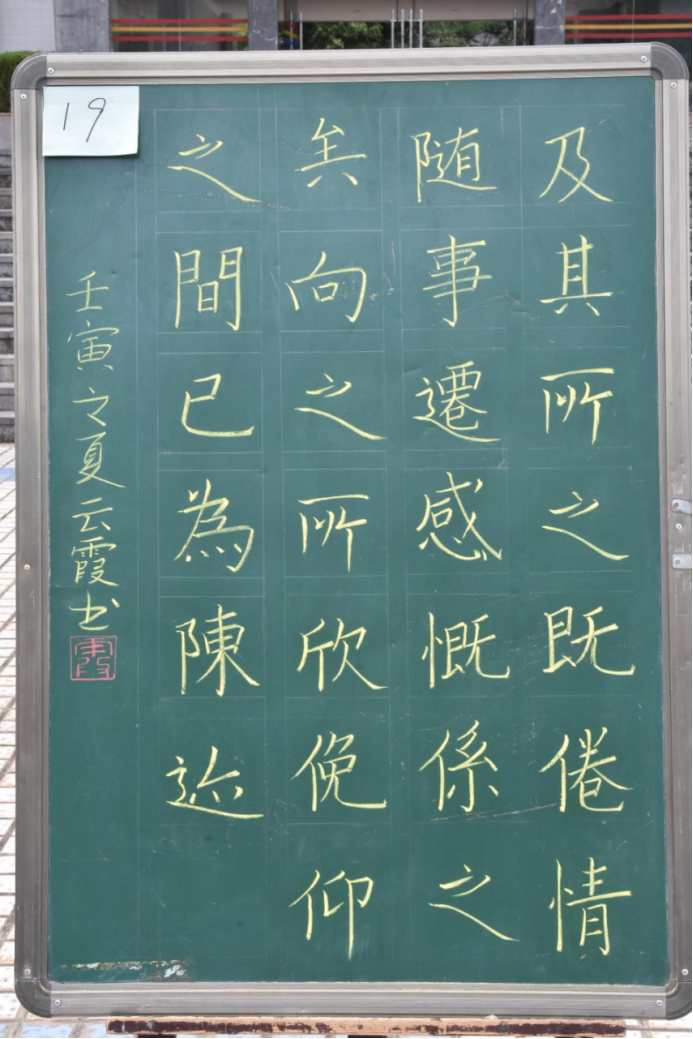 及其所之既倦情
随事遷感慨係之
矣向之所欣俛仰
之間已為陳迹
壬寅之夏云霞书
霞
19